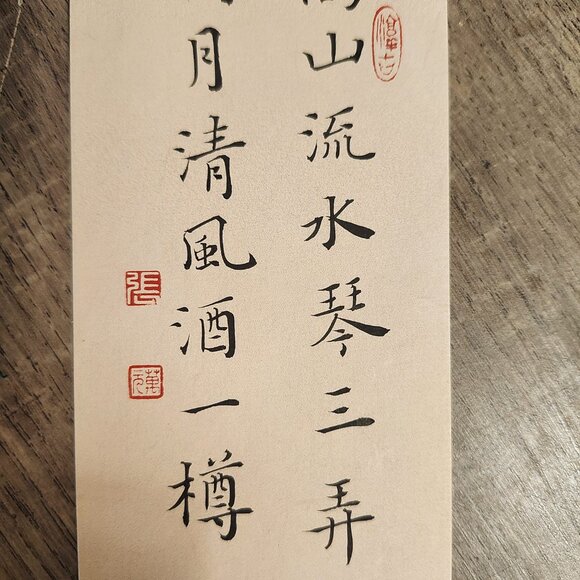 高山流水琴三弄
明月清風酒一樽
張